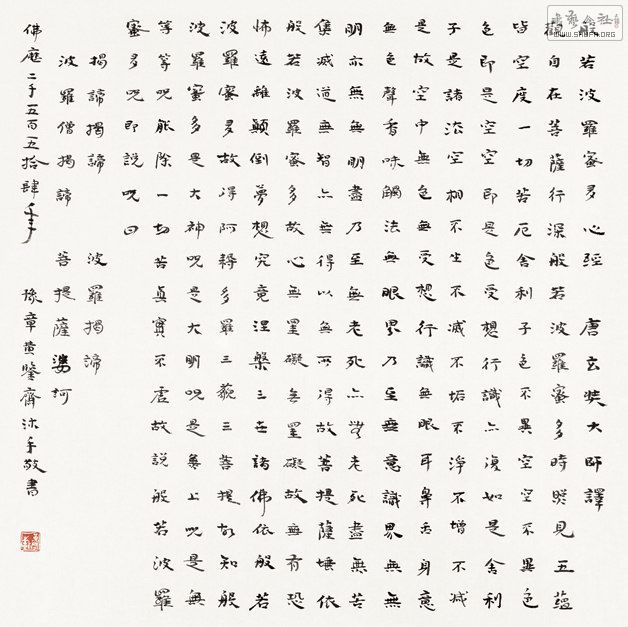 般若波羅蜜多心經 唐玄奘大師譯
觀自在菩薩行深般若波羅蜜多時照見五蘊
皆空度一切苦厄舍利子色不異空空不異色
色即是空空即是色受想行識亦復如是舍利
子是諸法空相不生不滅不垢不淨不增不減
是故空中無色無受想行識無眼耳鼻舌身意
無色聲香味觸法無眼界乃至無意識界無無
明亦無無明盡乃至無老死亦無老死盡無苦
集滅道無智亦無得以無所得故菩提薩埵依
般若波羅蜜多故心無罣礙無罣礙故無有恐
怖遠離顛倒夢想究竟涅槃三世諸佛依般若
波羅蜜多故得阿耨多羅三藐三菩提故知般
波羅蜜多是大神呪是大明呪是無上呪是無
等等呪能除一切苦真實不虛故說般若波羅
蜜多呪即說呪曰
揭諦揭諦 波羅揭諦
波羅僧揭諦 菩提薩婆訶
佛歷二千五百五拾肆年 豫章黄鑒齋沐手敬書
www.SHUFA.ORG